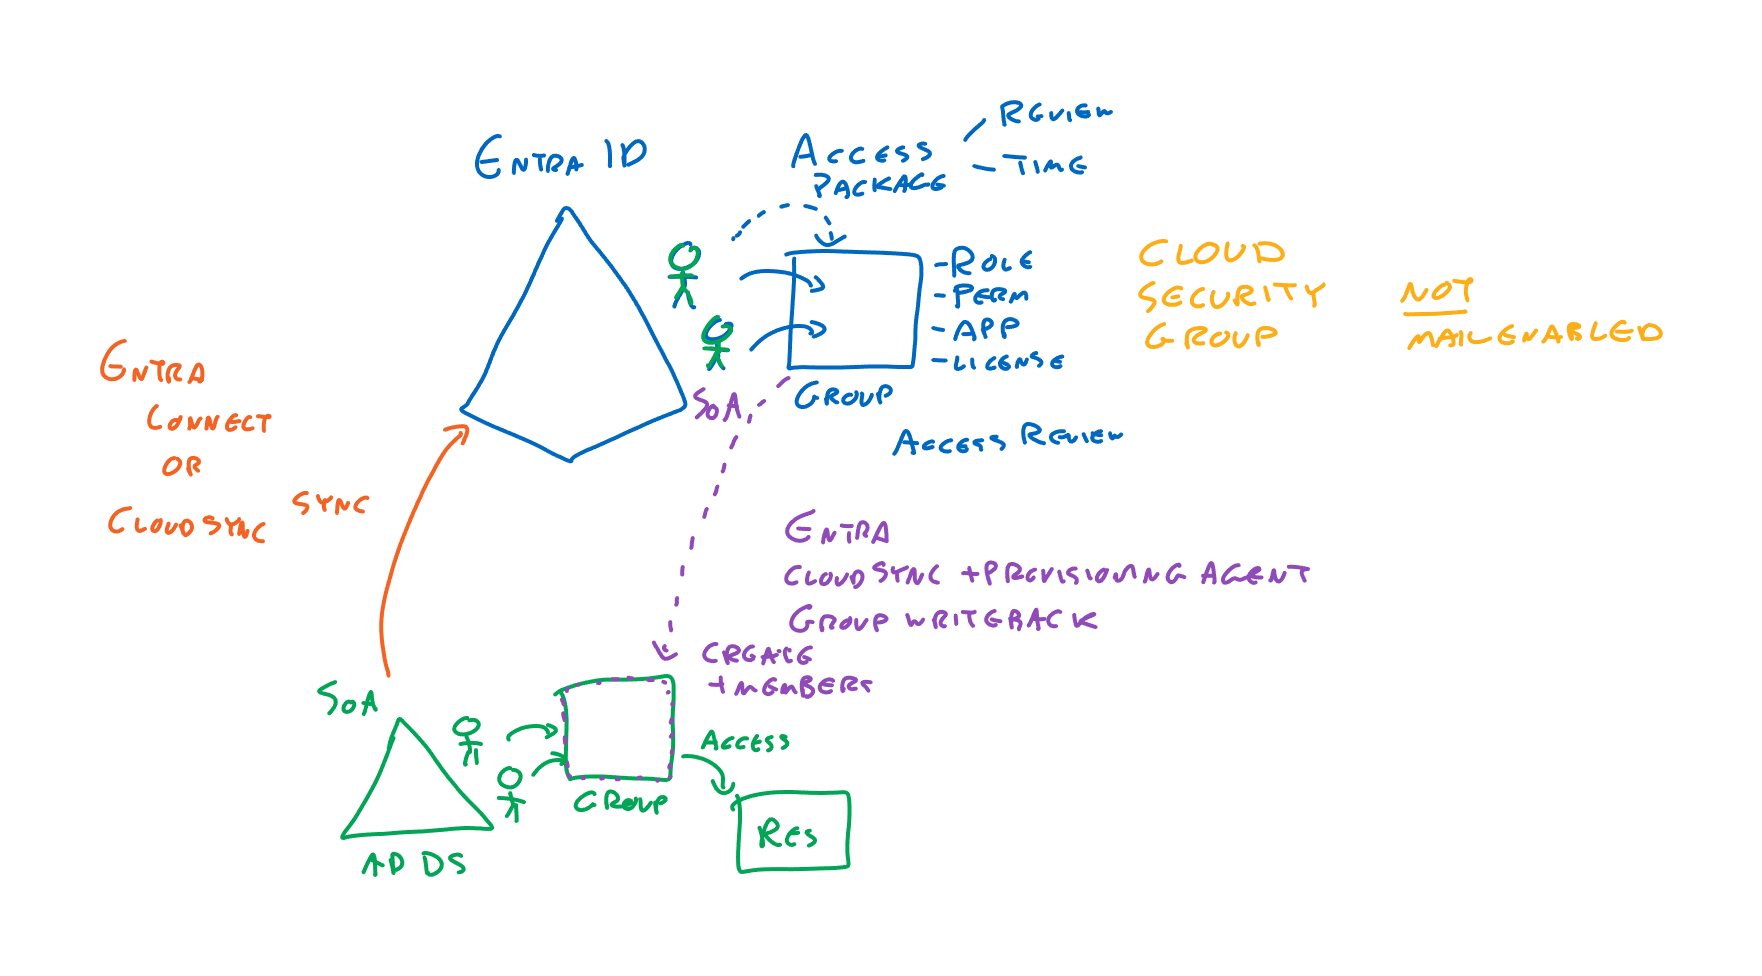 ENTRA ID
ACCESS
PACKAGE
REVIEW
TIME
-ROLE
-PERM
-APP
-LICENSE
GROUP
SOA
ACCESS REVIEW
CLOUD
SECURITY
GROUP
NOT
MAILENABLED
ENTRA
CONNECT
OR
CLOUD SYNC
SYNC
ENTRA
CLOUD SYNC +PROVISIONING AGENT
GROUP WRITEBACK
CREATE
+MEMBERS
SOA
AD DS
GROUP
ACCESS
RES